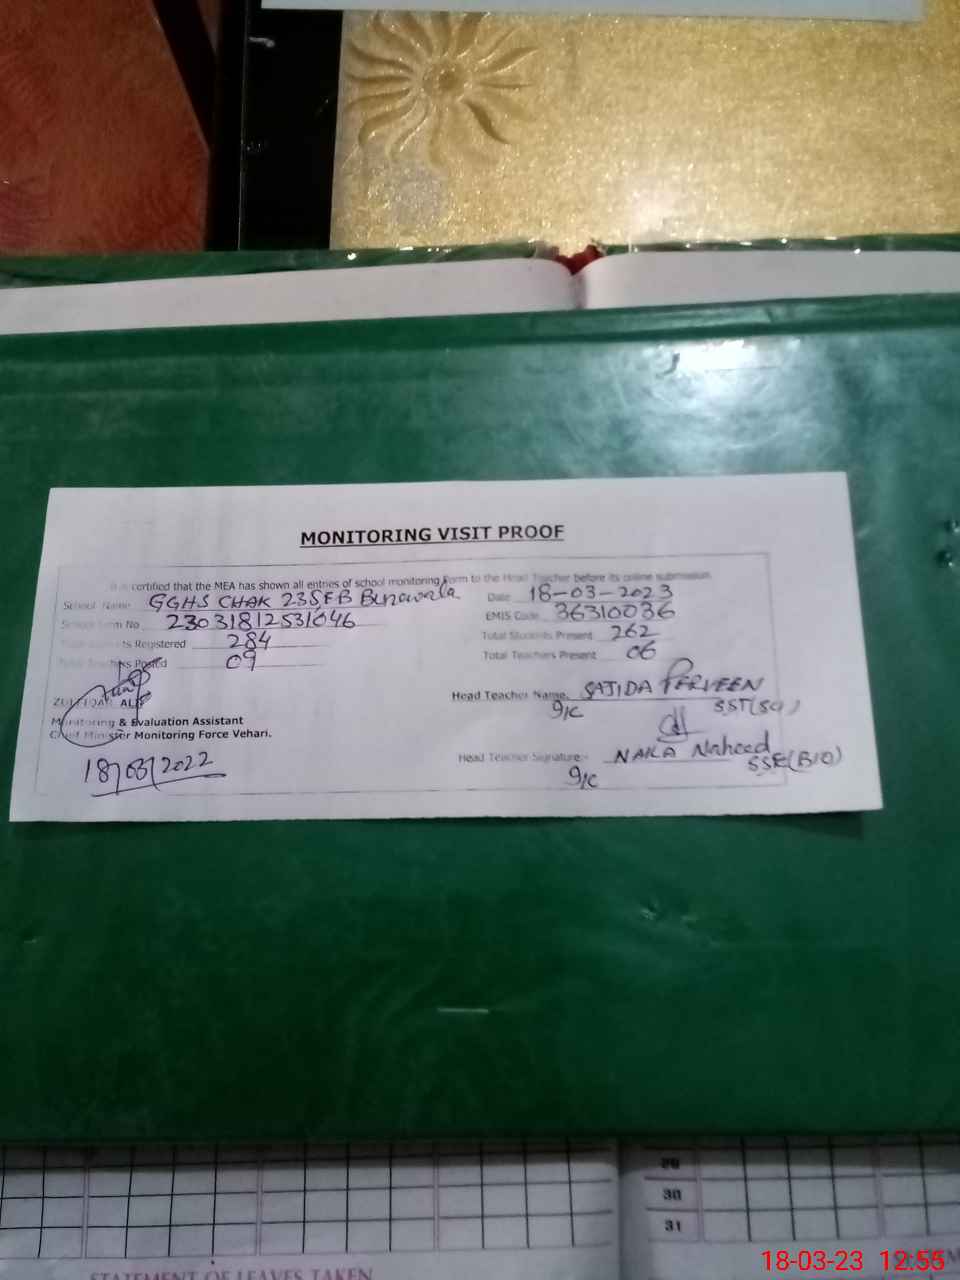 MONITORING VISIT PROOF
It is certified that the MEA has shown all entries of school monitoring Form to the Head Teacher before its online submission
School Name GGHS CHAK 235EB
Date 18-03-2023
School Form No 23031812531046
EMIS Code 36310036
Total Students Registered 284
Total Students Present 262
Total Teachers Posted 09
Total Teachers Present 06
ZULFIQAR ALI
Head Teacher Name. SAJIDA PERVEEN
I/C SST(Sci)
Monitoring & Evaluation Assistant
Chief Minister Monitoring Force Vehari.
18/03/2022
Head Teacher Signature:- NAILA Naheed
I/C SSE(BIO)
29
30
31
STATEMENT OF LEAVES TAKEN
18-03-23 12:55